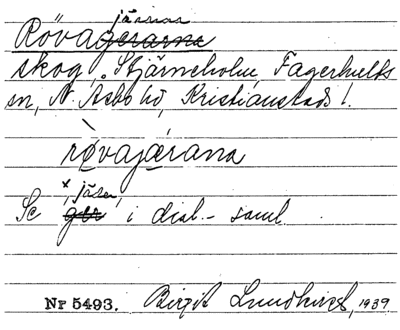 jäarna
Rövagerarna
skog, Stjärneholm, Fagerhults
sn, N. Åsbo hd, Kristianstads l.
røvajærana
x, jäser,
Se ger i dial.- saml.
Nr 5493. Birgit Lundkvist, 1939